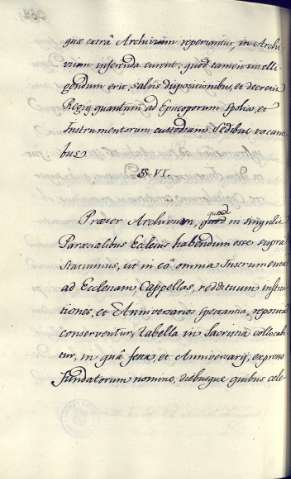 quæ extrà Archivium reperiuntur, in Archi-
vium inferenda curent; quod tamen intelli-
gendum erit, salvis dispositionibus, et decretis
Regiis quantum ad Episcoporum spolia, et
Instrumentorum custodiam Sedibus vacan-
tibus.
§ VI.
Præter Archivium, quod in singulis
Paræcialibus Ecclesiis habendum esse supra
statuimus, ut in eo omnia Instrumenta
ad Ecclesiam, Cappellas, reddituum institu-
tiones, et Anniversarios spectantia, reposita
conserventur, tabella in Sacristia colloca-
tur, in quâ festa, et Anniversarij, expresso
Fundatorum nomine, diebusque quibus cele-